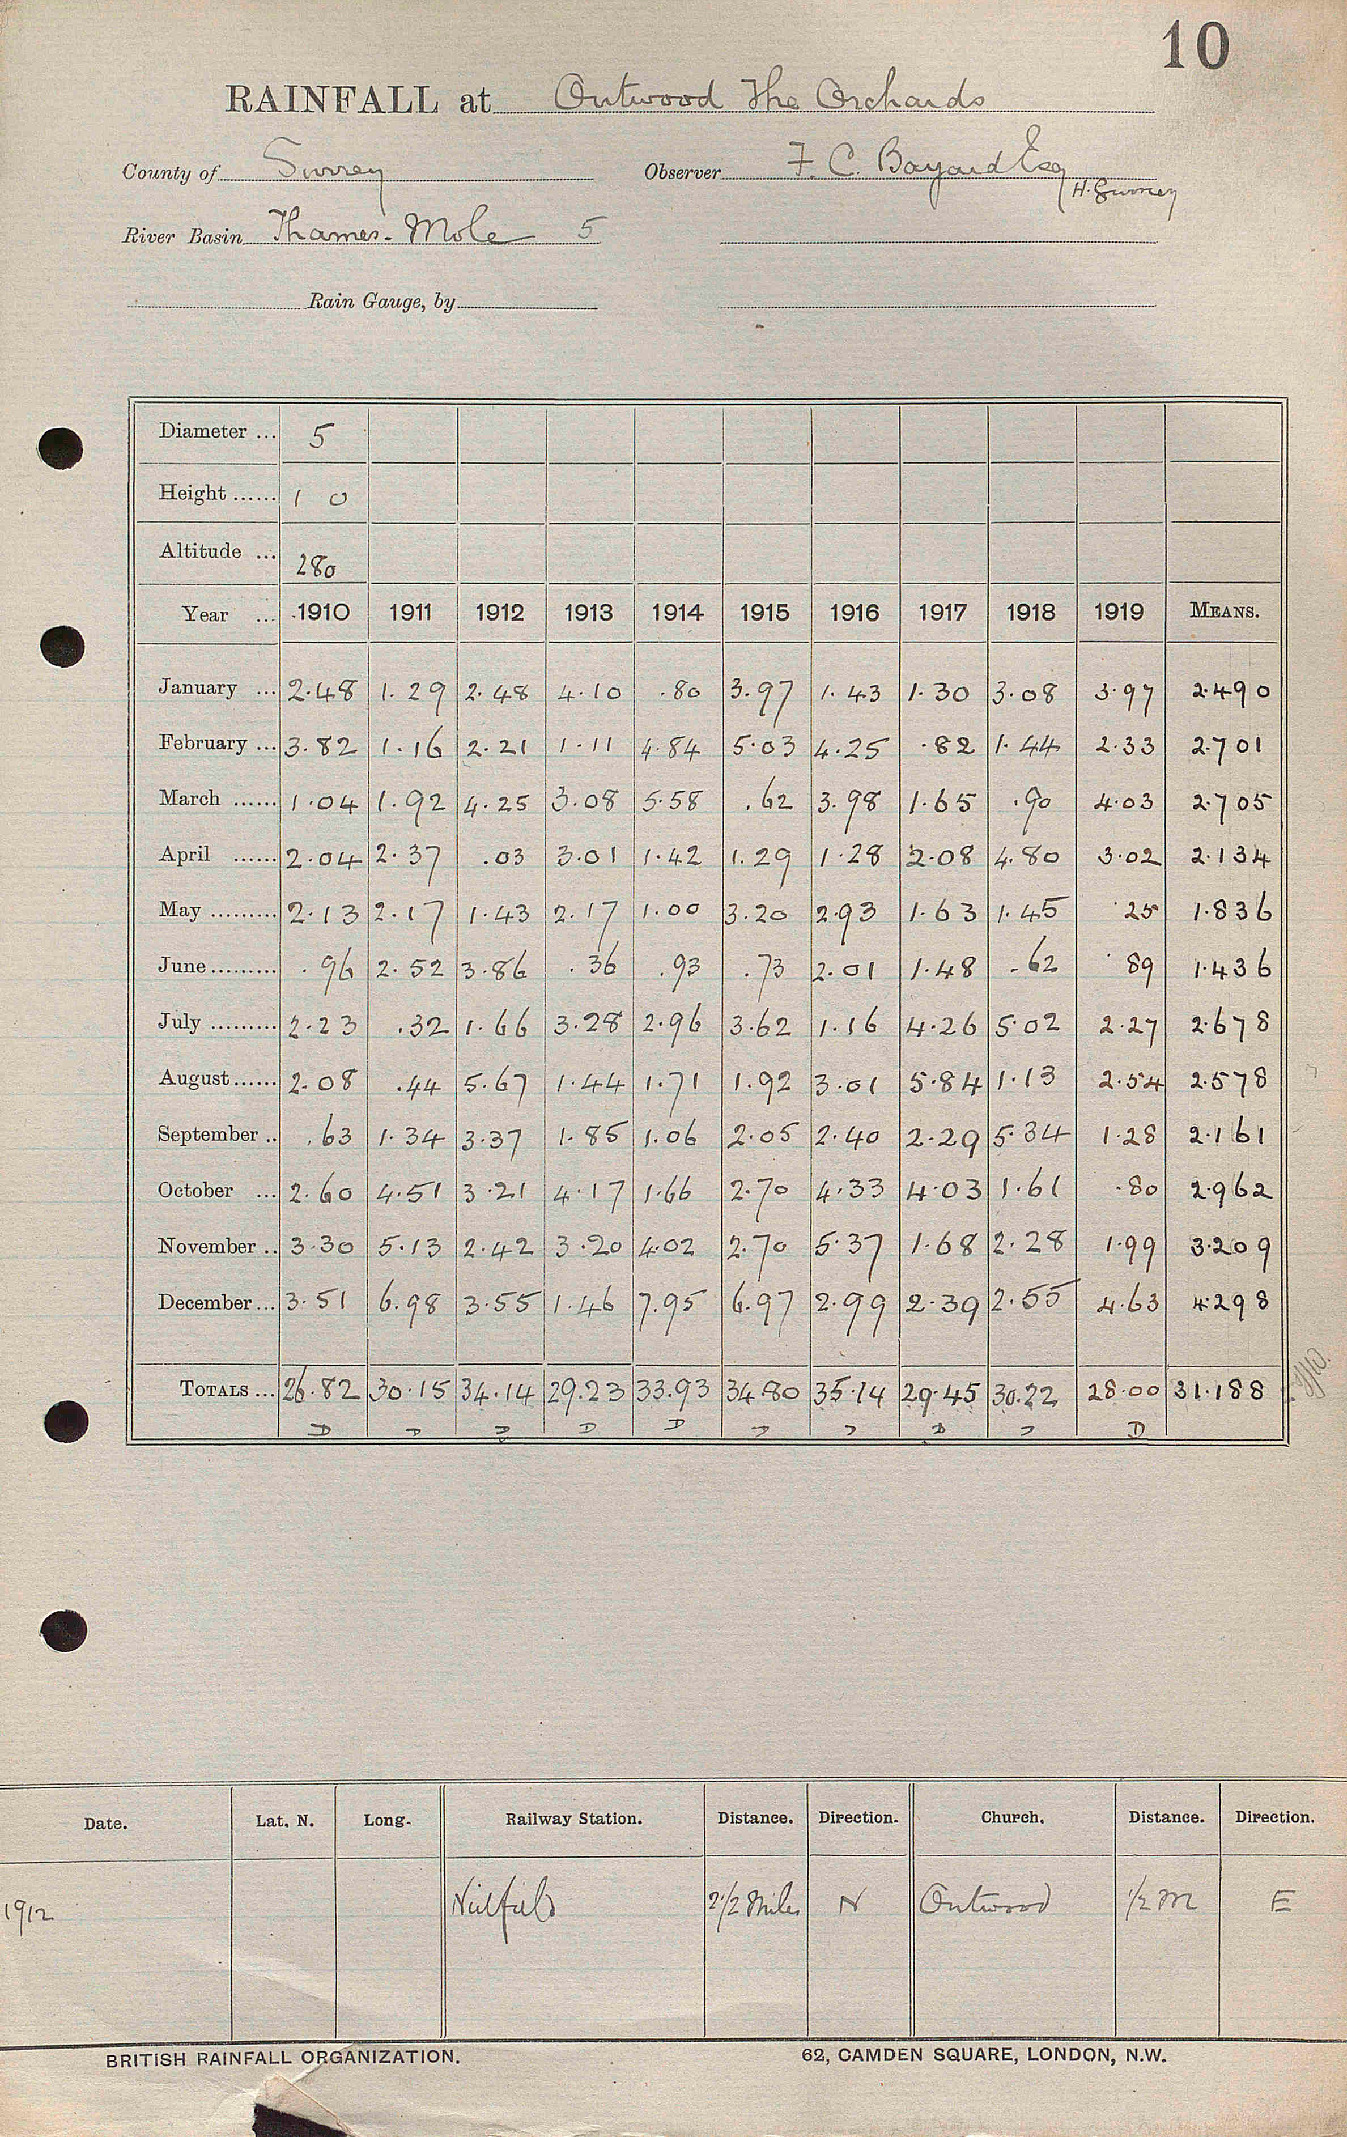 10
RAINFALL at Outwood The Orchards
County of Surrey Observer F. C. Bayard Esq
H. Gurney
River Basin Thames - Mole 5
Rain Gauge, by
Diameter ... 5
Height ...... 1 0
Altitude ... 280
Year ... 1910 1911 1912 1913 1914 1915 1916 1917 1918 1919 MEANS.
January ... 2.48 1.29 2.48 4.10 .80 3.97 1.43 1.30 3.08 3.97 2.490
February ... 3.82 1.16 2.21 1.11 4.84 5.03 4.25 .82 1.44 2.33 2.701
March ...... 1.04 1.92 4.25 3.08 5.58 .62 3.98 1.65 .90 4.03 2.705
April ...... 2.04 2.37 .03 3.01 1.42 1.29 1.28 2.08 4.80 3.02 2.134
May ......... 2.13 2.17 1.43 2.17 1.00 3.20 2.93 1.63 1.45 .25 1.836
June ......... .96 2.52 3.86 .36 .93 .73 2.01 1.48 .62 .89 1.436
July ......... 2.23 .32 1.66 3.28 2.96 3.62 1.16 4.26 5.02 2.27 2.678
August ...... 2.08 .44 5.67 1.44 1.71 1.92 3.01 5.84 1.13 2.54 2.578
September .. .63 1.34 3.37 1.85 1.06 2.05 2.40 2.29 5.34 1.28 2.161
October ... 2.60 4.51 3.21 4.17 1.66 2.70 4.33 4.03 1.61 .80 2.962
November .. 3.30 5.13 2.42 3.20 4.02 2.70 5.37 1.68 2.28 1.99 3.209
December ... 3.51 6.98 3.55 1.46 7.95 6.97 2.99 2.39 2.55 4.63 4.298
TOTALS ... 26.82 30.15 34.14 29.23 33.93 34.80 35.14 29.45 30.22 28.00 31.188
Date. Lat. N. Long. Railway Station. Distance. Direction. Church. Distance. Direction.
1912 Nutfield 2½ Miles N Outwood ½ M E
BRITISH RAINFALL ORGANIZATION. 62, CAMDEN SQUARE, LONDON, N.W.